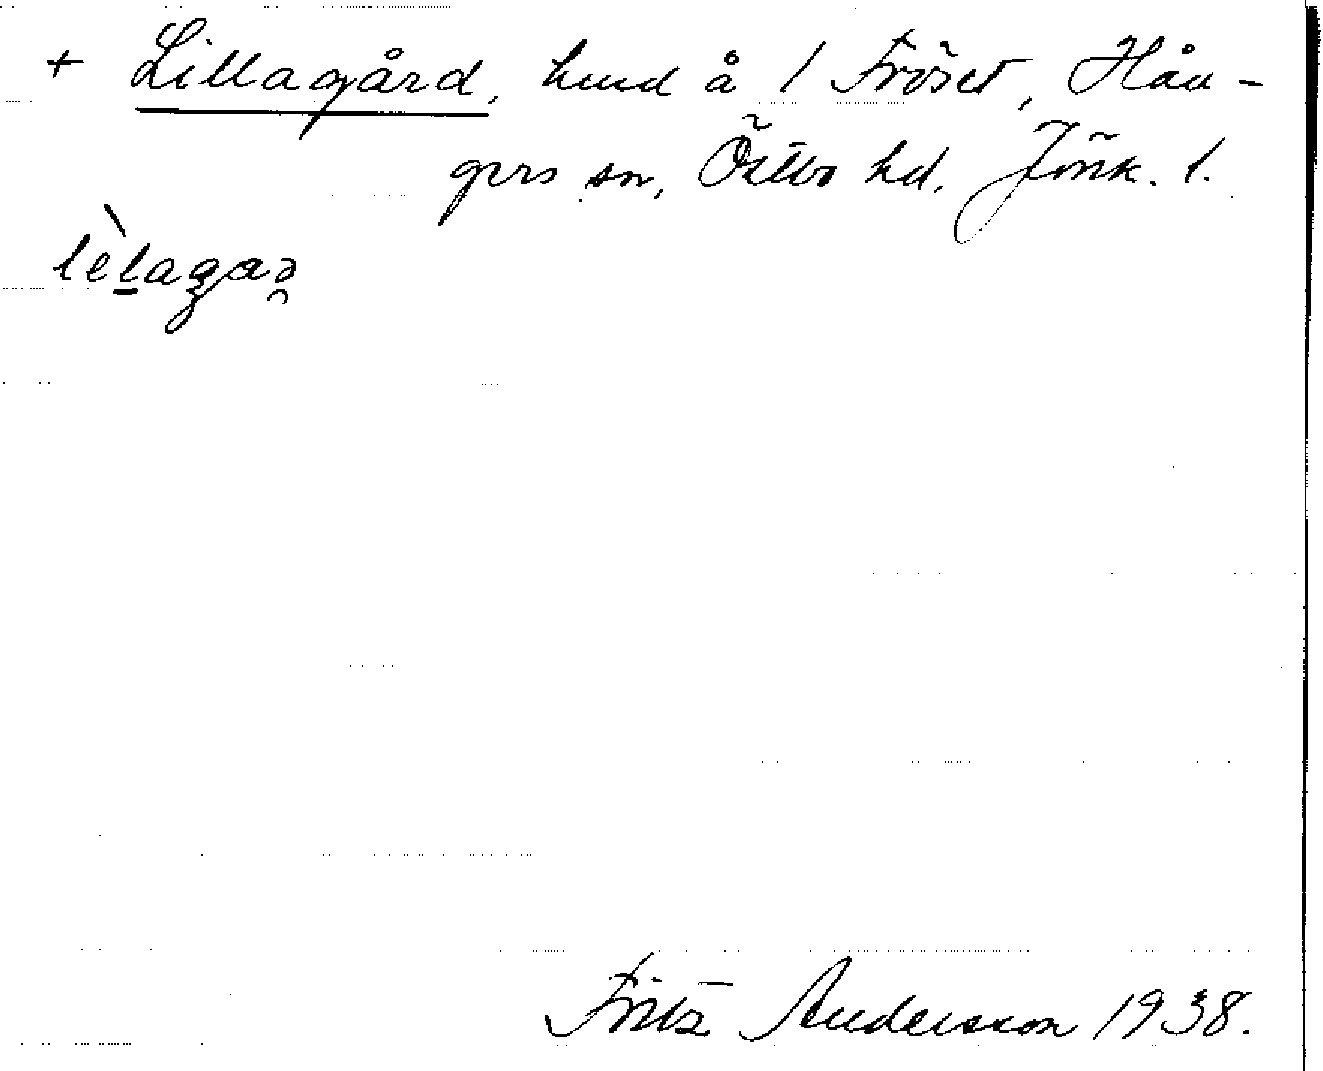 + Lillagård, hmd å 1 Fröset, Hån-
gers sn, Östbo hd. Jönk. l.
lèlagaꝛ
Fritz Andersson 1938.